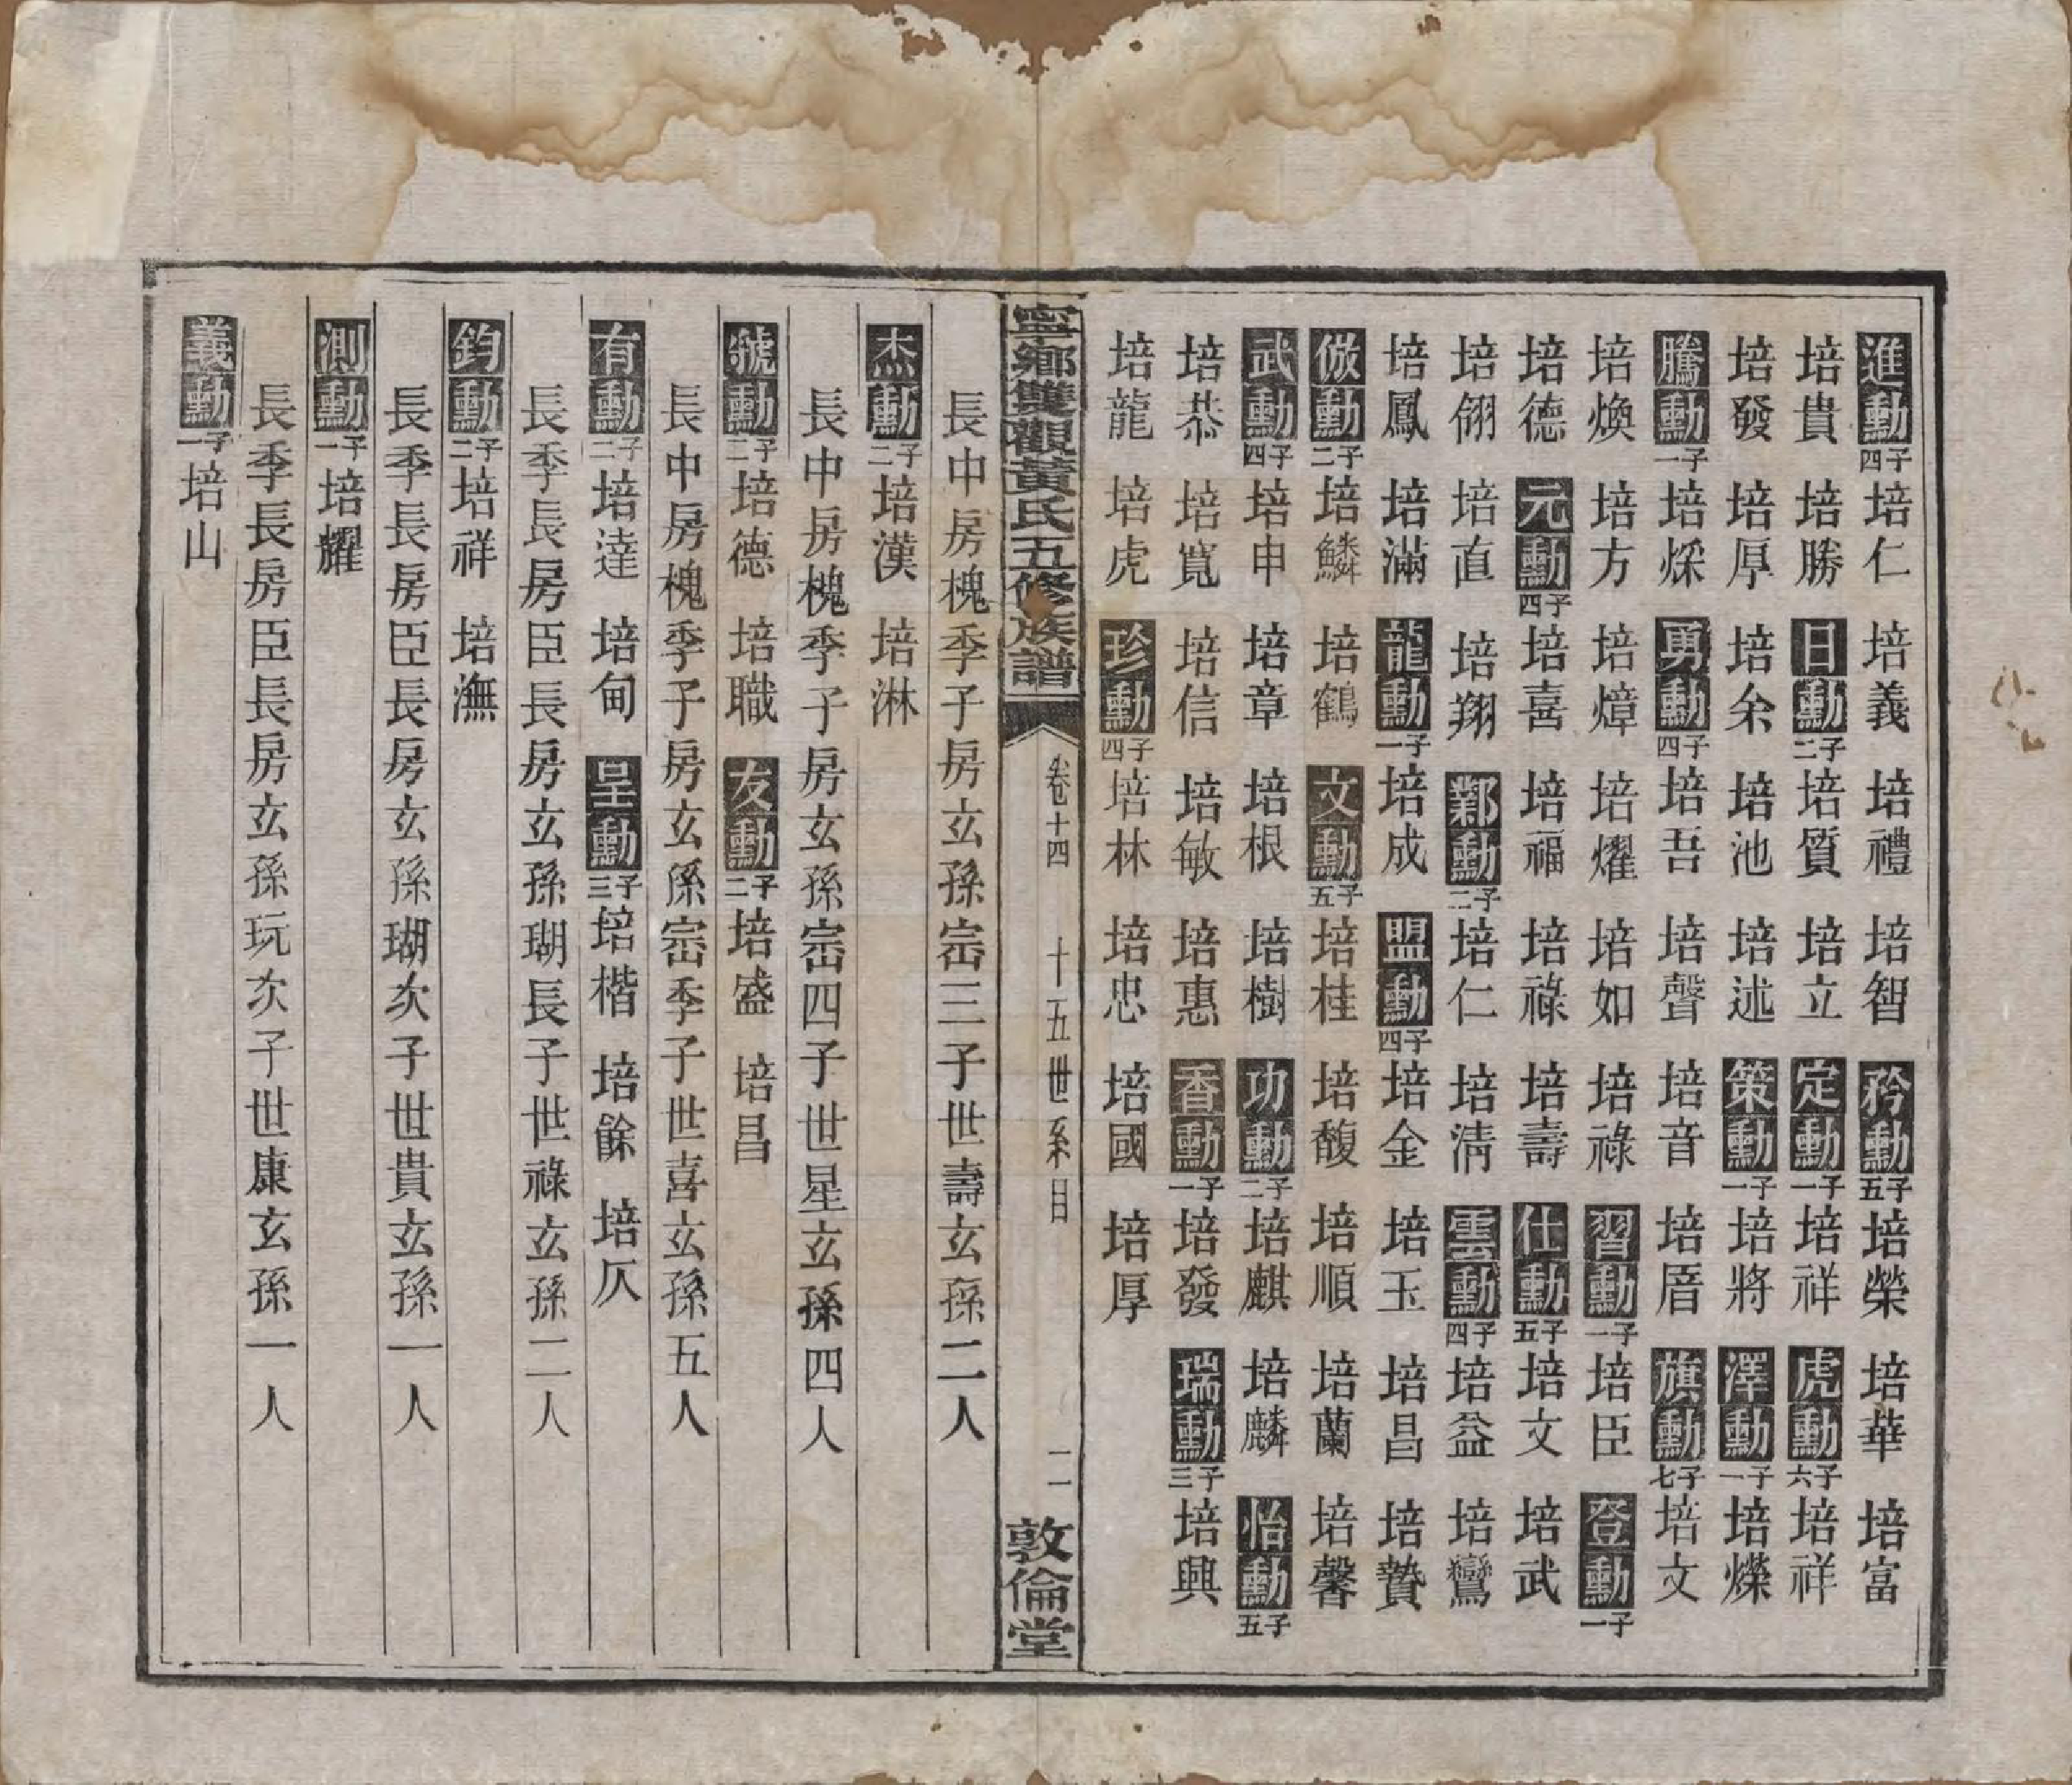 進勳四子 培仁 培義 培禮 培智 矜勳五子 培榮 培華 培富
培貴 培勝 日勳二子 培質 培立 定勳一子 培祥 虎勳六子 培祥
培發 培厚 培籴 培池 培述 策勳一子 培將 澤勳一子 培爍
騰勳一子 培綵 勇勳四子 培吾 培聲 培音 培厝 旗勳七子 培文
培煥 培方 培煒 培燿 培如 培祿 習勳一子 培臣 登勳一子
培德 元勳四子 培喜 培福 培祿 培壽 仕勳五子 培文 培武
培翎 培直 培翔 鄴勳二子 培仁 培淸 雲勳四子 培益 培鸞
培鳳 培滿 龍勳一子 培成 盟勳四子 培金 培玉 培昌 培贊
倣勳二子 培鱗 培鶴 文勳五子 培桂 培馥 培順 培蘭 培馨
武勳四子 培申 培章 培根 培樹 功勳二子 培麒 培麟 怡勳五子
培恭 培寬 培信 培敏 培惠 香勳一子 培發 瑞勳三子 培興
培龍 培虎 珍勳四子 培林 培忠 培國 培厚
寧鄉雙觀黃氏五修族譜 卷十四 十五世系目 二 敦倫堂
長中房槐季子房玄孫崈三子世壽玄孫二人
杰勳二子 培漢 培淋
長中房槐季子房玄孫崈四子世星玄孫四人
虢勳二子 培德 培職 友勳二子 培盛 培昌
長中房槐季子房玄孫崈季子世喜玄孫五人
有勳二子 培達 培甸 呈勳三子 培楷 培餘 培仄
長季長房臣長房玄孫瑚長子世祿玄孫二人
鈞勳二子 培祥 培潕
長季長房臣長房玄孫瑚次子世貴玄孫一人
測勳一子 培耀
長季長房臣長房玄孫玩次子世康玄孫一人
義勳一子 培山